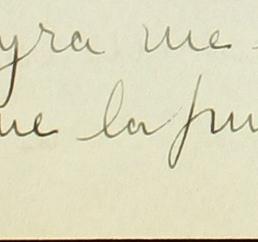 yra me
ue la pu